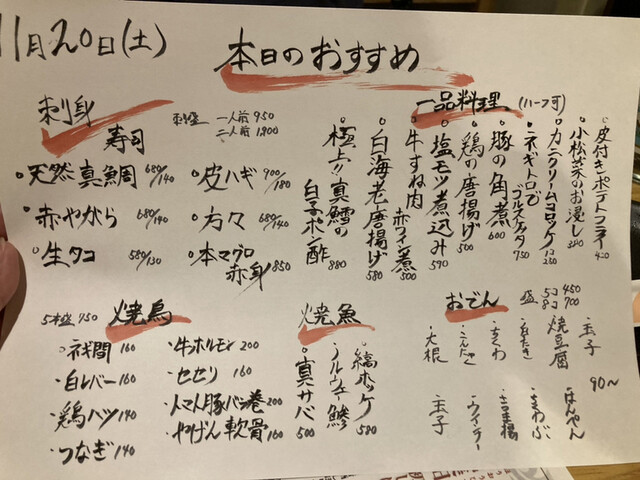 11月20日(土)
本日のおすすめ
刺身
寿司
刺盛 一人前 950
二人前 1,800
天然真鯛 680/140
皮ハギ 900/180
赤やがら 680/140
方々 680/140
生タコ 580/130
本マグロ
赤身 850
一品料理 (ハーフ可)
皮付きポテトフライ 420
小松菜のお浸し 380
カニクリームコロッケ
ネギトロで
ブルスケッタ 750
豚の角煮 600
鶏の唐揚げ 500
塩モツ煮込み 590
牛すね肉
赤ワイン煮 500
白海老唐揚げ 580
極上!!真鱈の
白子ポン酢 880
5本盛 750
焼鳥
ネギ間 160
牛ホルモン 200
白レバー 160
セセリ 160
鶏ハツ 140
トマト豚バラ巻 200
つなぎ 140
やげん軟骨 160
焼魚
縞ホッケ 580
ノルウェー鯵
真サバ 500
おでん
盛 5コ 450
8コ 700
90~
玉子
はんぺん
焼豆腐
ちくわぶ
さつま揚
ちくわ
こんにゃく
ウインナー
大根
玉子